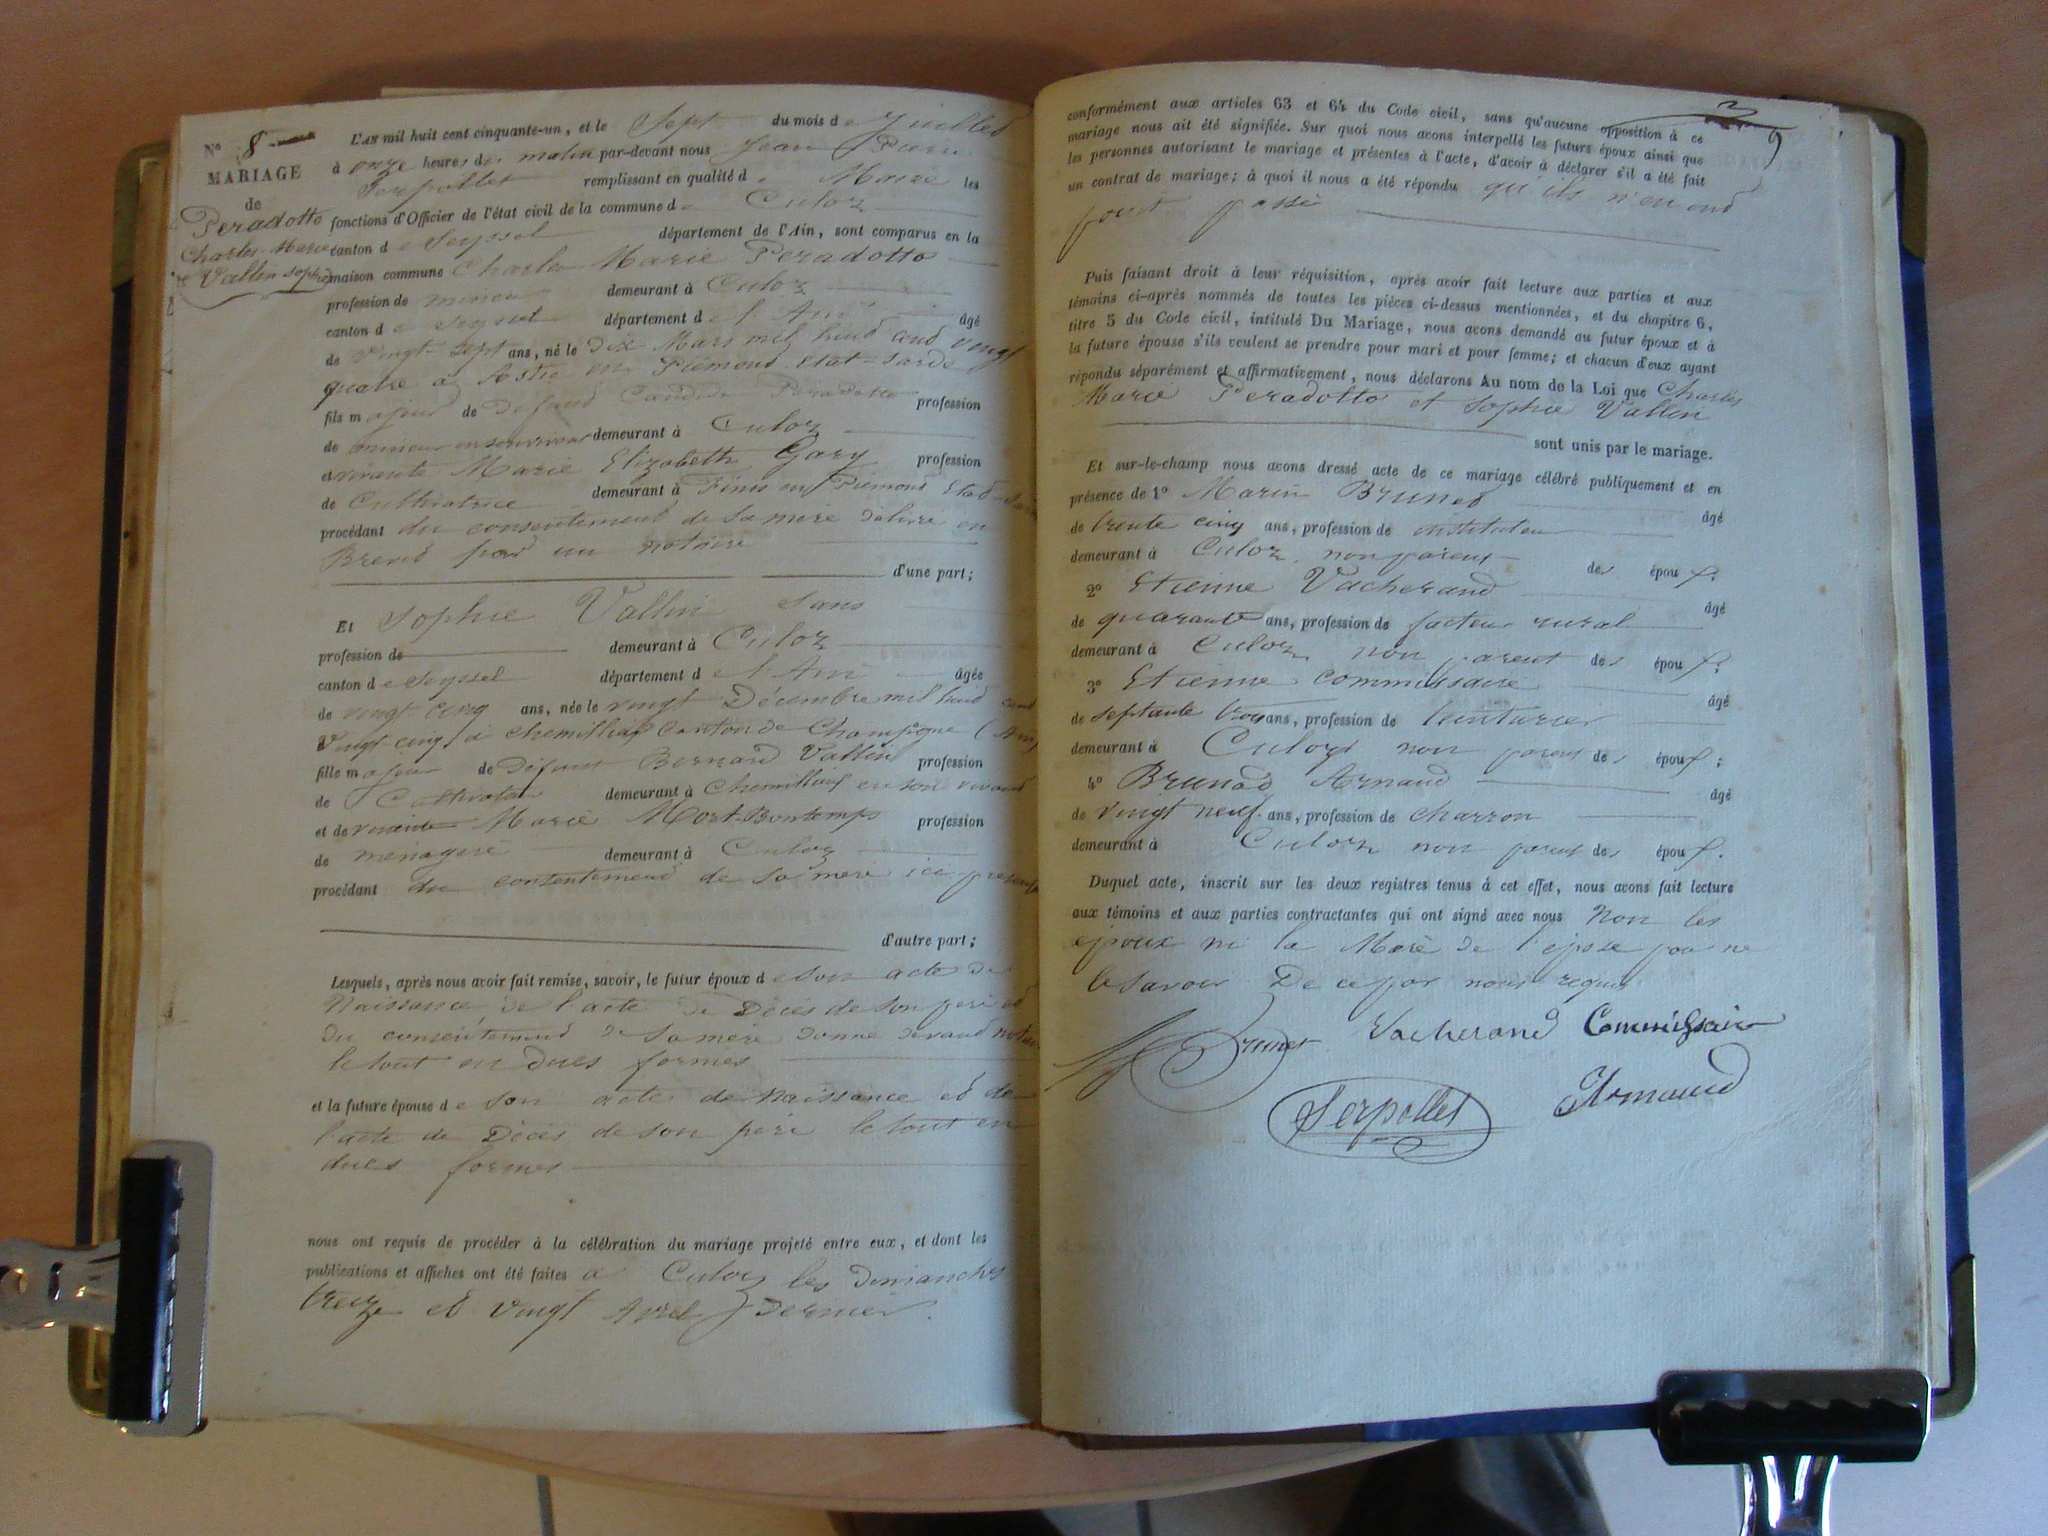 N° 8
MARIAGE
de
Peradotto
Charles Marie
et
Vallin Sophie
L'AN mil huit cent cinquante-un, et le Sept du mois de Juillet
à onze heures du matin par-devant nous Jean Pierre
Serpollet remplissant en qualité de Maire les
fonctions d'Officier de l'état civil de la commune de Culoz
canton de Seyssel département de l'Ain, sont comparus en la
maison commune Charles Marie Peradotto
profession de mineur demeurant à Culoz
canton de Seyssel département de l'Ain âgé
de vingt-sept ans, né le dix Mars mil huit cent vingt
quatre à Astie en Piémond Etat-Sarde
fils majeur de défunt Candide Peradotto profession
de mineur en son vivant demeurant à Culoz
et vivante Marie Elizabeth Gary profession
de Cultivatrice demeurant à en Piémond Etat-Sarde
procédant du consentement de sa mère délivré en
Brevet par un notaire
d'une part;
Et Sophie Vallin sans
profession de demeurant à Culoz
canton de Seyssel département de l'Ain âgée
de vingt cinq ans, née le vingt Décembre mil huit cent
vingt-cinq à chemillieu canton de Champagne (Ain)
fille majeur de défunt Bernard Vallin profession
de Cultivateur demeurant à Chemillieu en son vivant
et de vivante Marie Mort-Bontemps profession
de ménagère demeurant à Culoz
procédant du consentement de sa mère ici présente
d'autre part;
Lesquels, après nous avoir fait remise, savoir, le futur époux de son acte de
Naissance, de l'acte de Décès de son père et
du consentement de sa mère donné devant notaire
le tout en dues formes
et la future épouse de son acte de Naissance et de
l'acte de Décès de son père le tout en
dues formes
nous ont requis de procéder à la célébration du mariage projeté entre eux, et dont les
publications et affiches ont été faites à Culoz les dimanches
treize et vingt Avril dernier.
9
conformément aux articles 63 et 64 du Code civil, sans qu'aucune opposition à ce
mariage nous ait été signifiée. Sur quoi nous avons interpellé les futurs époux ainsi que
les personnes autorisant le mariage et présentes à l'acte, d'avoir à déclarer s'il a été fait
un contrat de mariage; à quoi il nous a été répondu qu'ils n'en ont
point passé
Puis faisant droit à leur réquisition, après avoir fait lecture aux parties et aux
témoins ci-après nommés de toutes les pièces ci-dessus mentionnées, et du chapitre 6,
titre 5 du Code civil, intitulé Du Mariage, nous avons demandé au futur époux et à
la future épouse s'ils veulent se prendre pour mari et pour femme; et chacun d'eux ayant
répondu séparément et affirmativement, nous déclarons Au nom de la Loi que Charles
Marie Peradotto et Sophie Vallin
sont unis par le mariage.
Et sur-le-champ nous avons dressé acte de ce mariage célébré publiquement et en
présence de 1° Marin Brunet âgé
de trente cinq ans, profession de instituteur
demeurant à Culoz, non parent des époux;
2° Etienne Vacherand âgé
de quarante ans, profession de facteur rural
demeurant à Culoz non parent des époux;
3° Etienne Commissaire âgé
de septante trois ans, profession de teinturier
demeurant à Culoz non parent des époux;
4° Brunod Arnaud âgé
de vingt neuf ans, profession de charron
demeurant à Culoz non parent des époux.
Duquel acte, inscrit sur les deux registres tenus à cet effet, nous avons fait lecture
aux témoins et aux parties contractantes qui ont signé avec nous Non les
époux ni la Mère de l'épose pour ne
le savoir De ce par nous requis
M Brunet Vacherand Commissaire
Serpollet Armaud